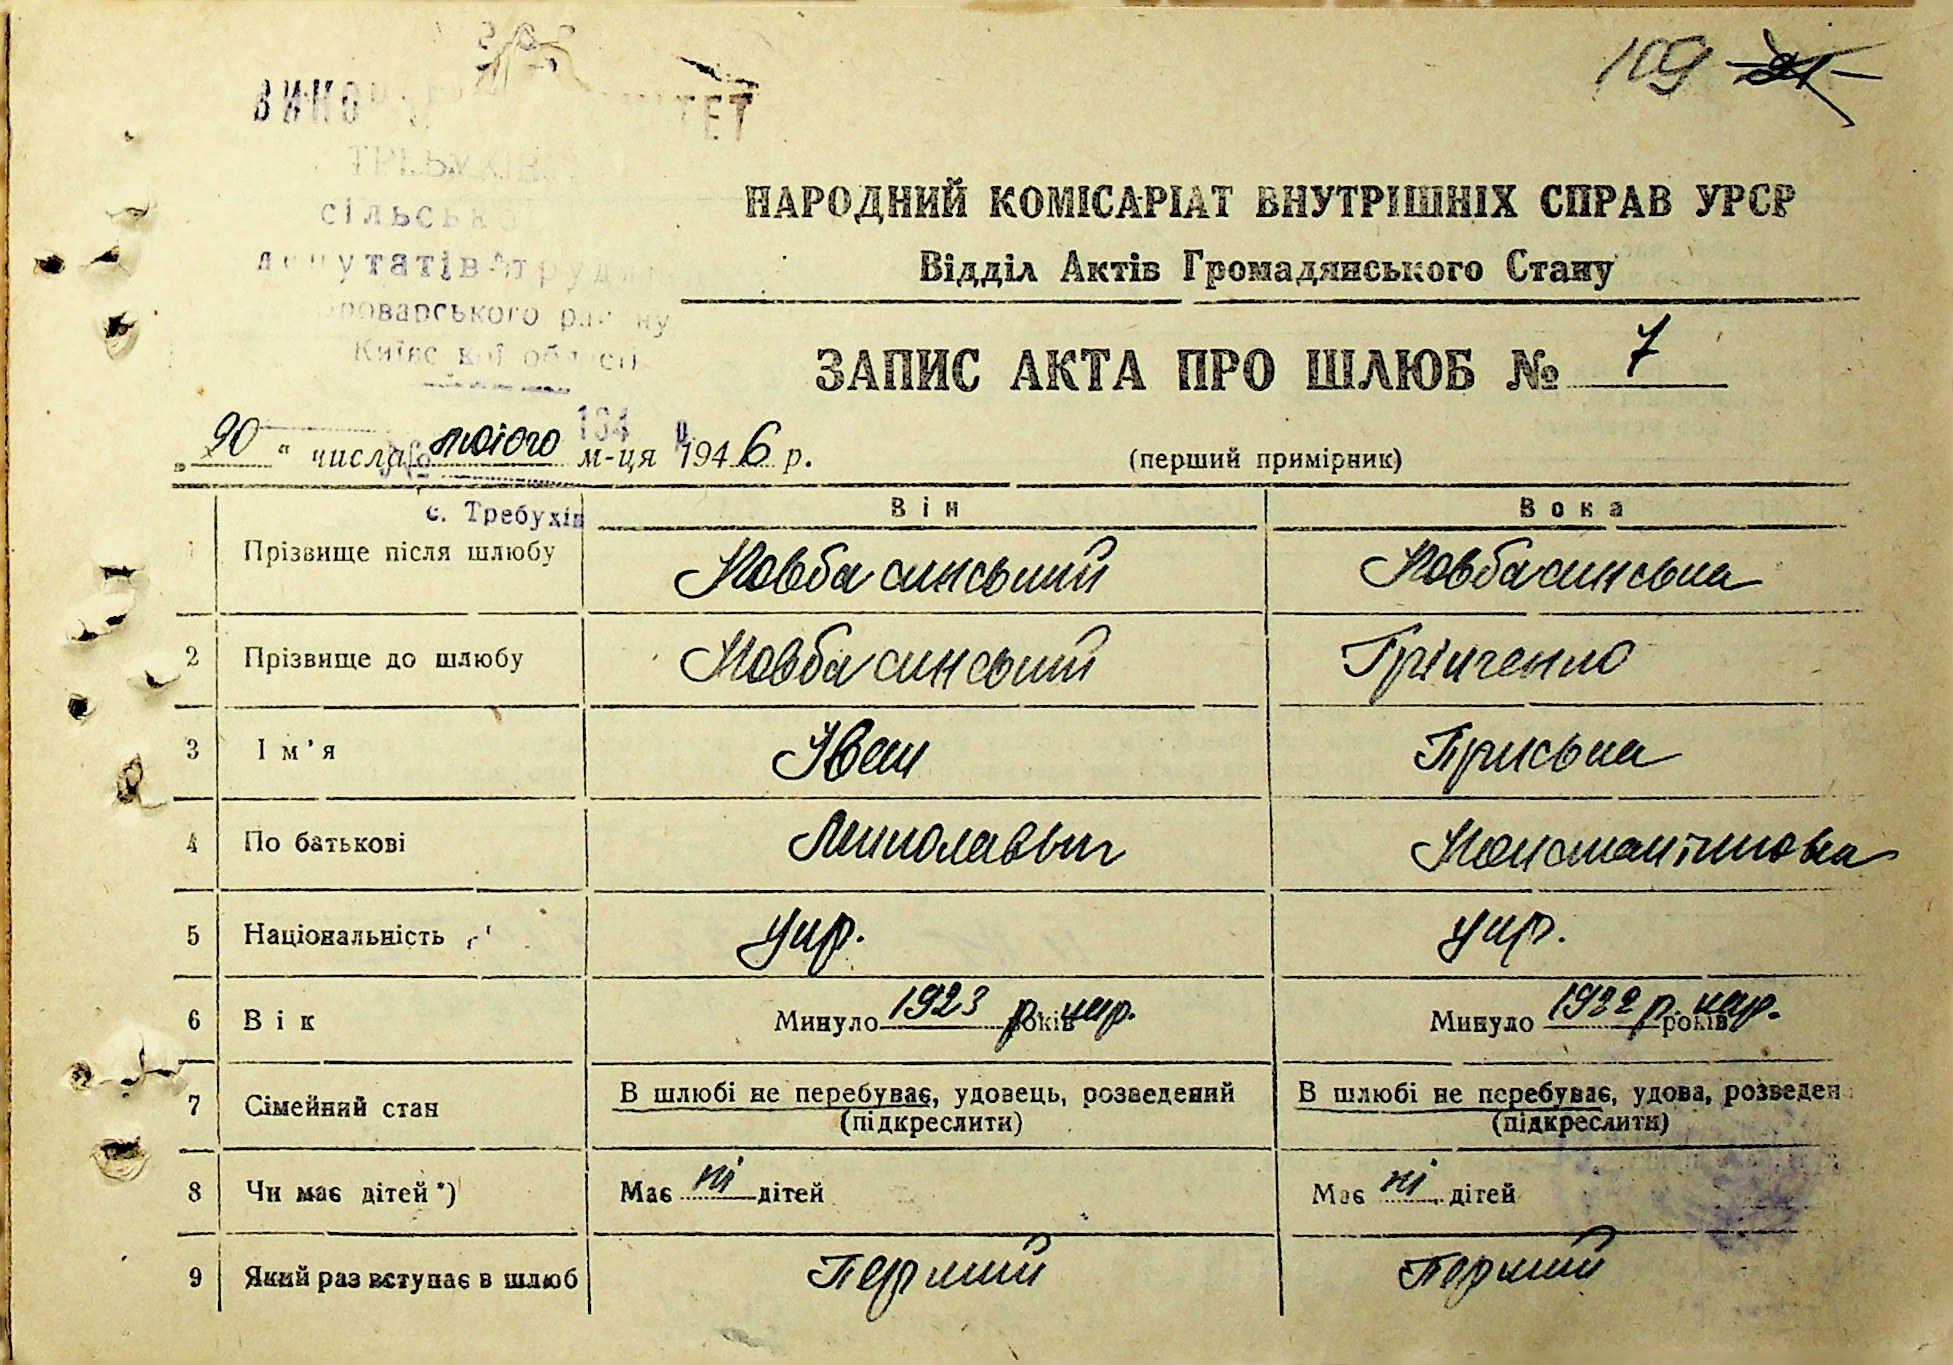 109
ТЕТ
сільсько
депутатів труд
роварського району
Київської області
НАРОДНИЙ КОМІСАРІАТ ВНУТРІШНІХ СПРАВ УРСР
Відділ Актів Громадянського Стану
ЗАПИС АКТА ПРО ШЛЮБ № 7
194
„20“ числа лютого м-ця 1946 р.
(перший примірник)
№
с. Требухів
Він Вона
1 Прізвище після шлюбу Ковбасинський Ковбасинська
2 Прізвище до шлюбу Ковбасинський Грінченко
3 Ім'я Іван Приська
4 По батькові Миколаевич Константіновна
5 Національність укр. укр.
6 Вік Минуло 1923 р. нар. років Минуло 1922 р. нар. років
7 Сімейний стан В шлюбі не перебуває, удовець, розведений (підкреслити) В шлюбі не перебуває, удова, розведен (підкреслити)
8 Чи має дітей*) Має ні дітей Має ні дітей
9 Який раз вступає в шлюб Перший Перший